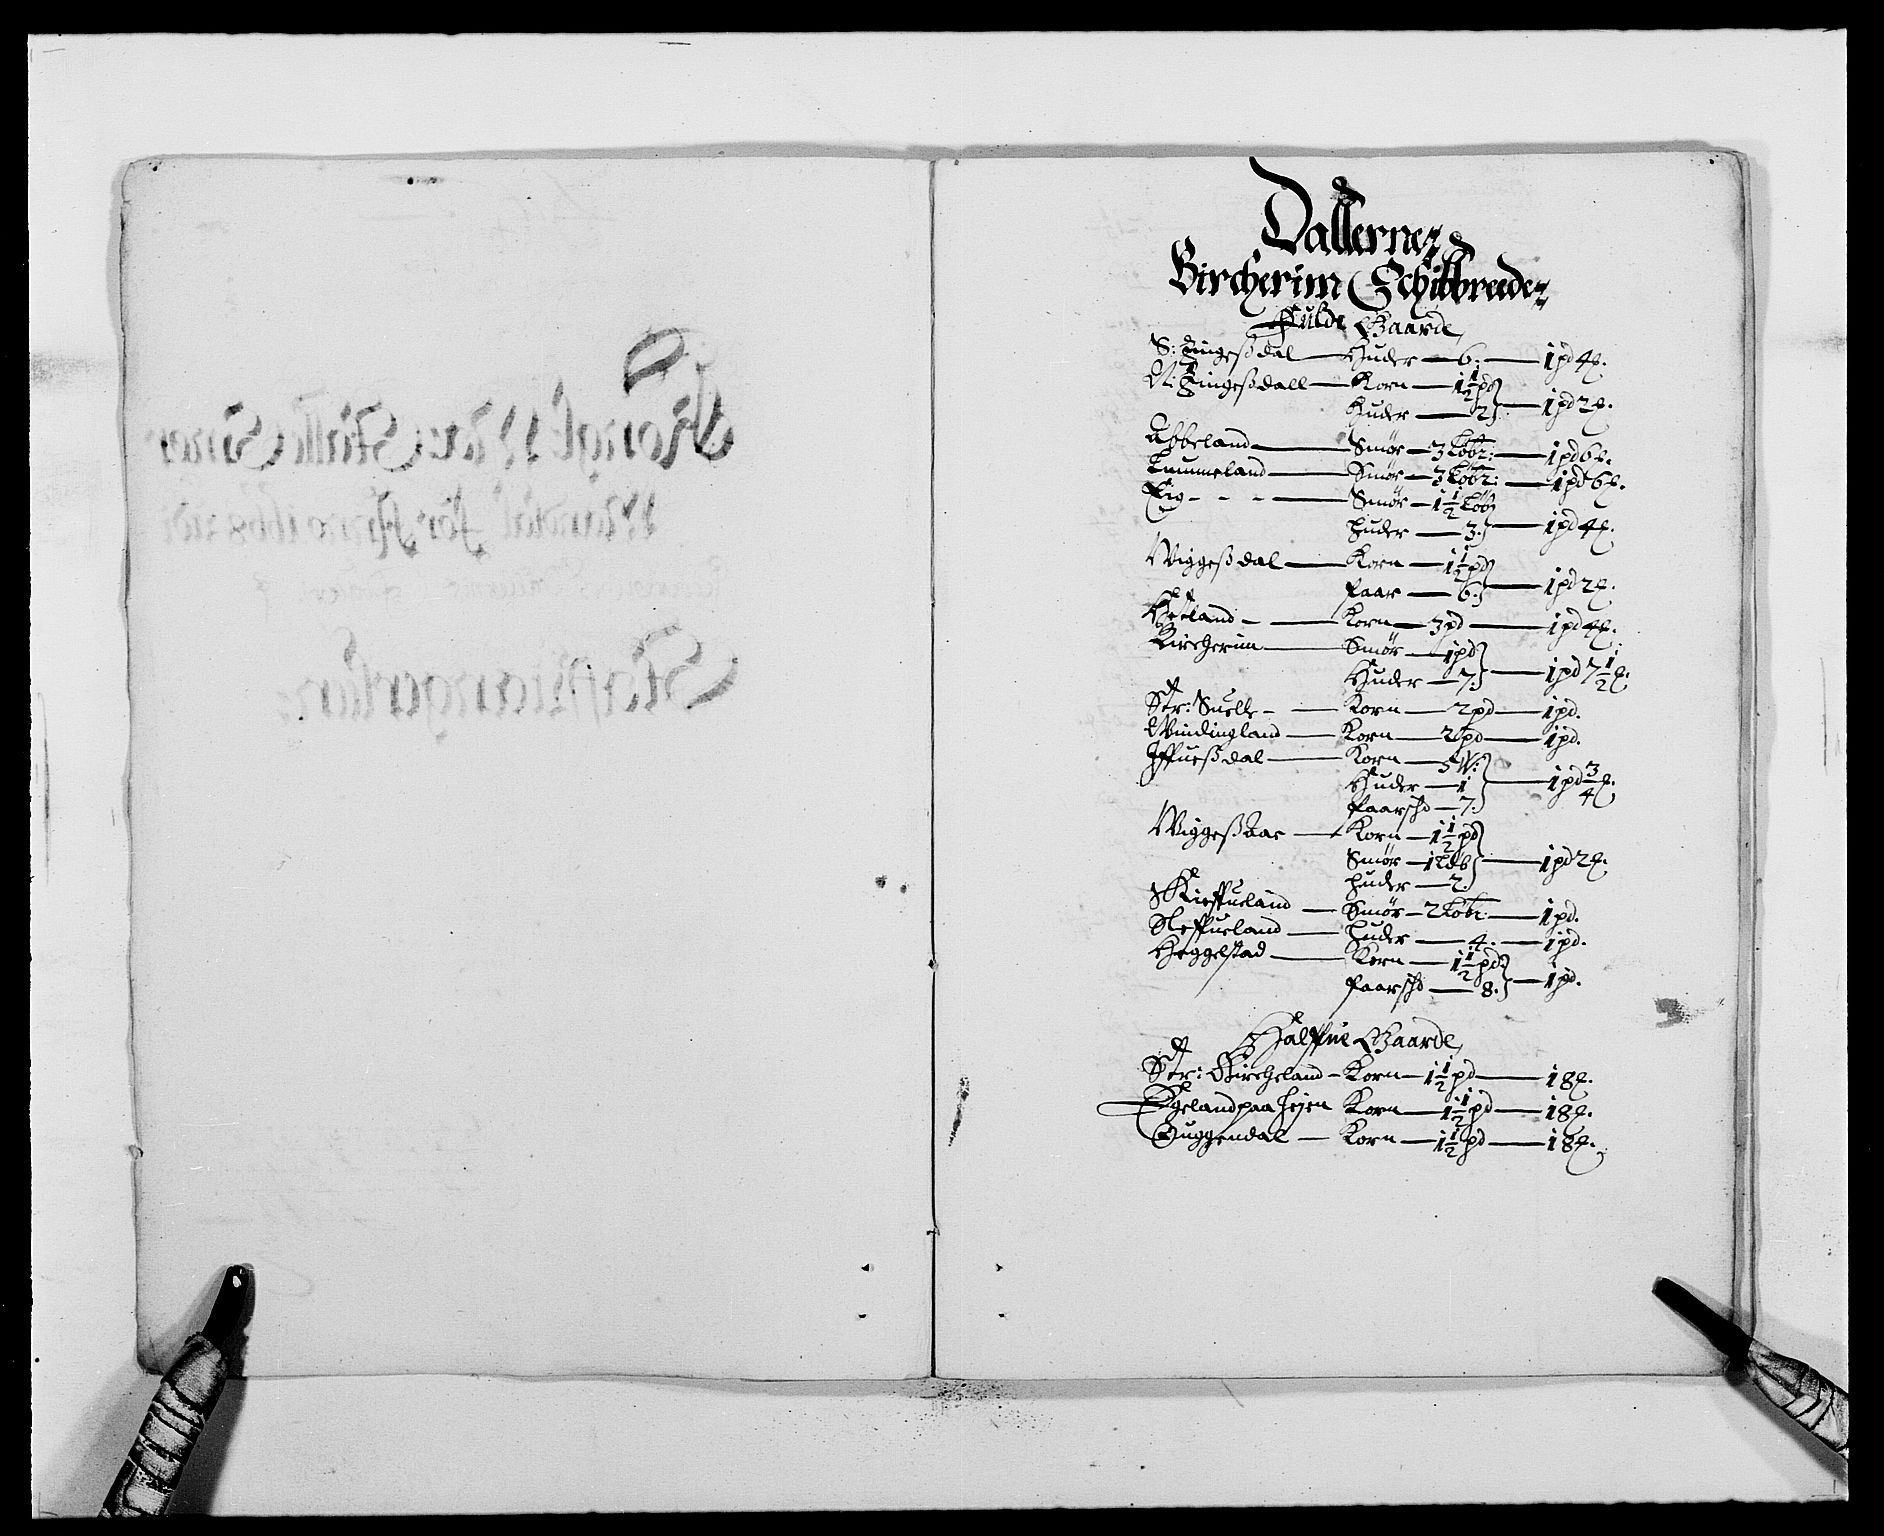 Dallerne
Bircherim Schibbreede
Fulde Gaarde
S: Tingeßdal — Huder — 6. — 1 pd 4 ℔.
N: Tingeßdall — Korn — 1½ pd
Huder — 2 — 1 pd 2 ℔.
Abbeland — Smør — 3 Løbr: — 1 pd 6 ℔.
Tummeland — Smør — 3 Løbr: — 1 pd 6 ℔.
Eig - - - — Smør — 1½ Løb
Huder — 3. — 1 pd 4 ℔.
Wiggeßdal — Korn — 1½ pd
faar — 6. — 1 pd 2 ℔.
Hetland - — Korn — 3 pd — 1 pd 4 ℔.
Bircherim — Smør — 1 pd
Huder — 7. — 1 pd 7½ ℔.
Str: Suelle - — Korn — 2 pd — 1 pd.
Windingland — Korn — 2 pd — 1 pd.
Iffueßdal — Korn — 3 W:
Huder — 1
faarschd — 7. — 1 pd ¾ ℔.
Wiggeßaae — Korn — 1½ pd
Smør — 1 Løb — 1 pd 2 ℔.
Huder — 2.
Kieffueland — Smør — 2 Løbr — 1 pd.
Sleffueland — Huder — 4. — 1 pd.
Heggelstad — Korn — 1½ pd
faarschd — 8. — 1 pd.
Halffue Gaarde
Str: Kircheland - Korn — 1½ pd — 18 ℔.
Egeland paa heien Korn — 1½ pd — 18 ℔.
Guggendal — Korn — 1½ pd — 18 ℔.